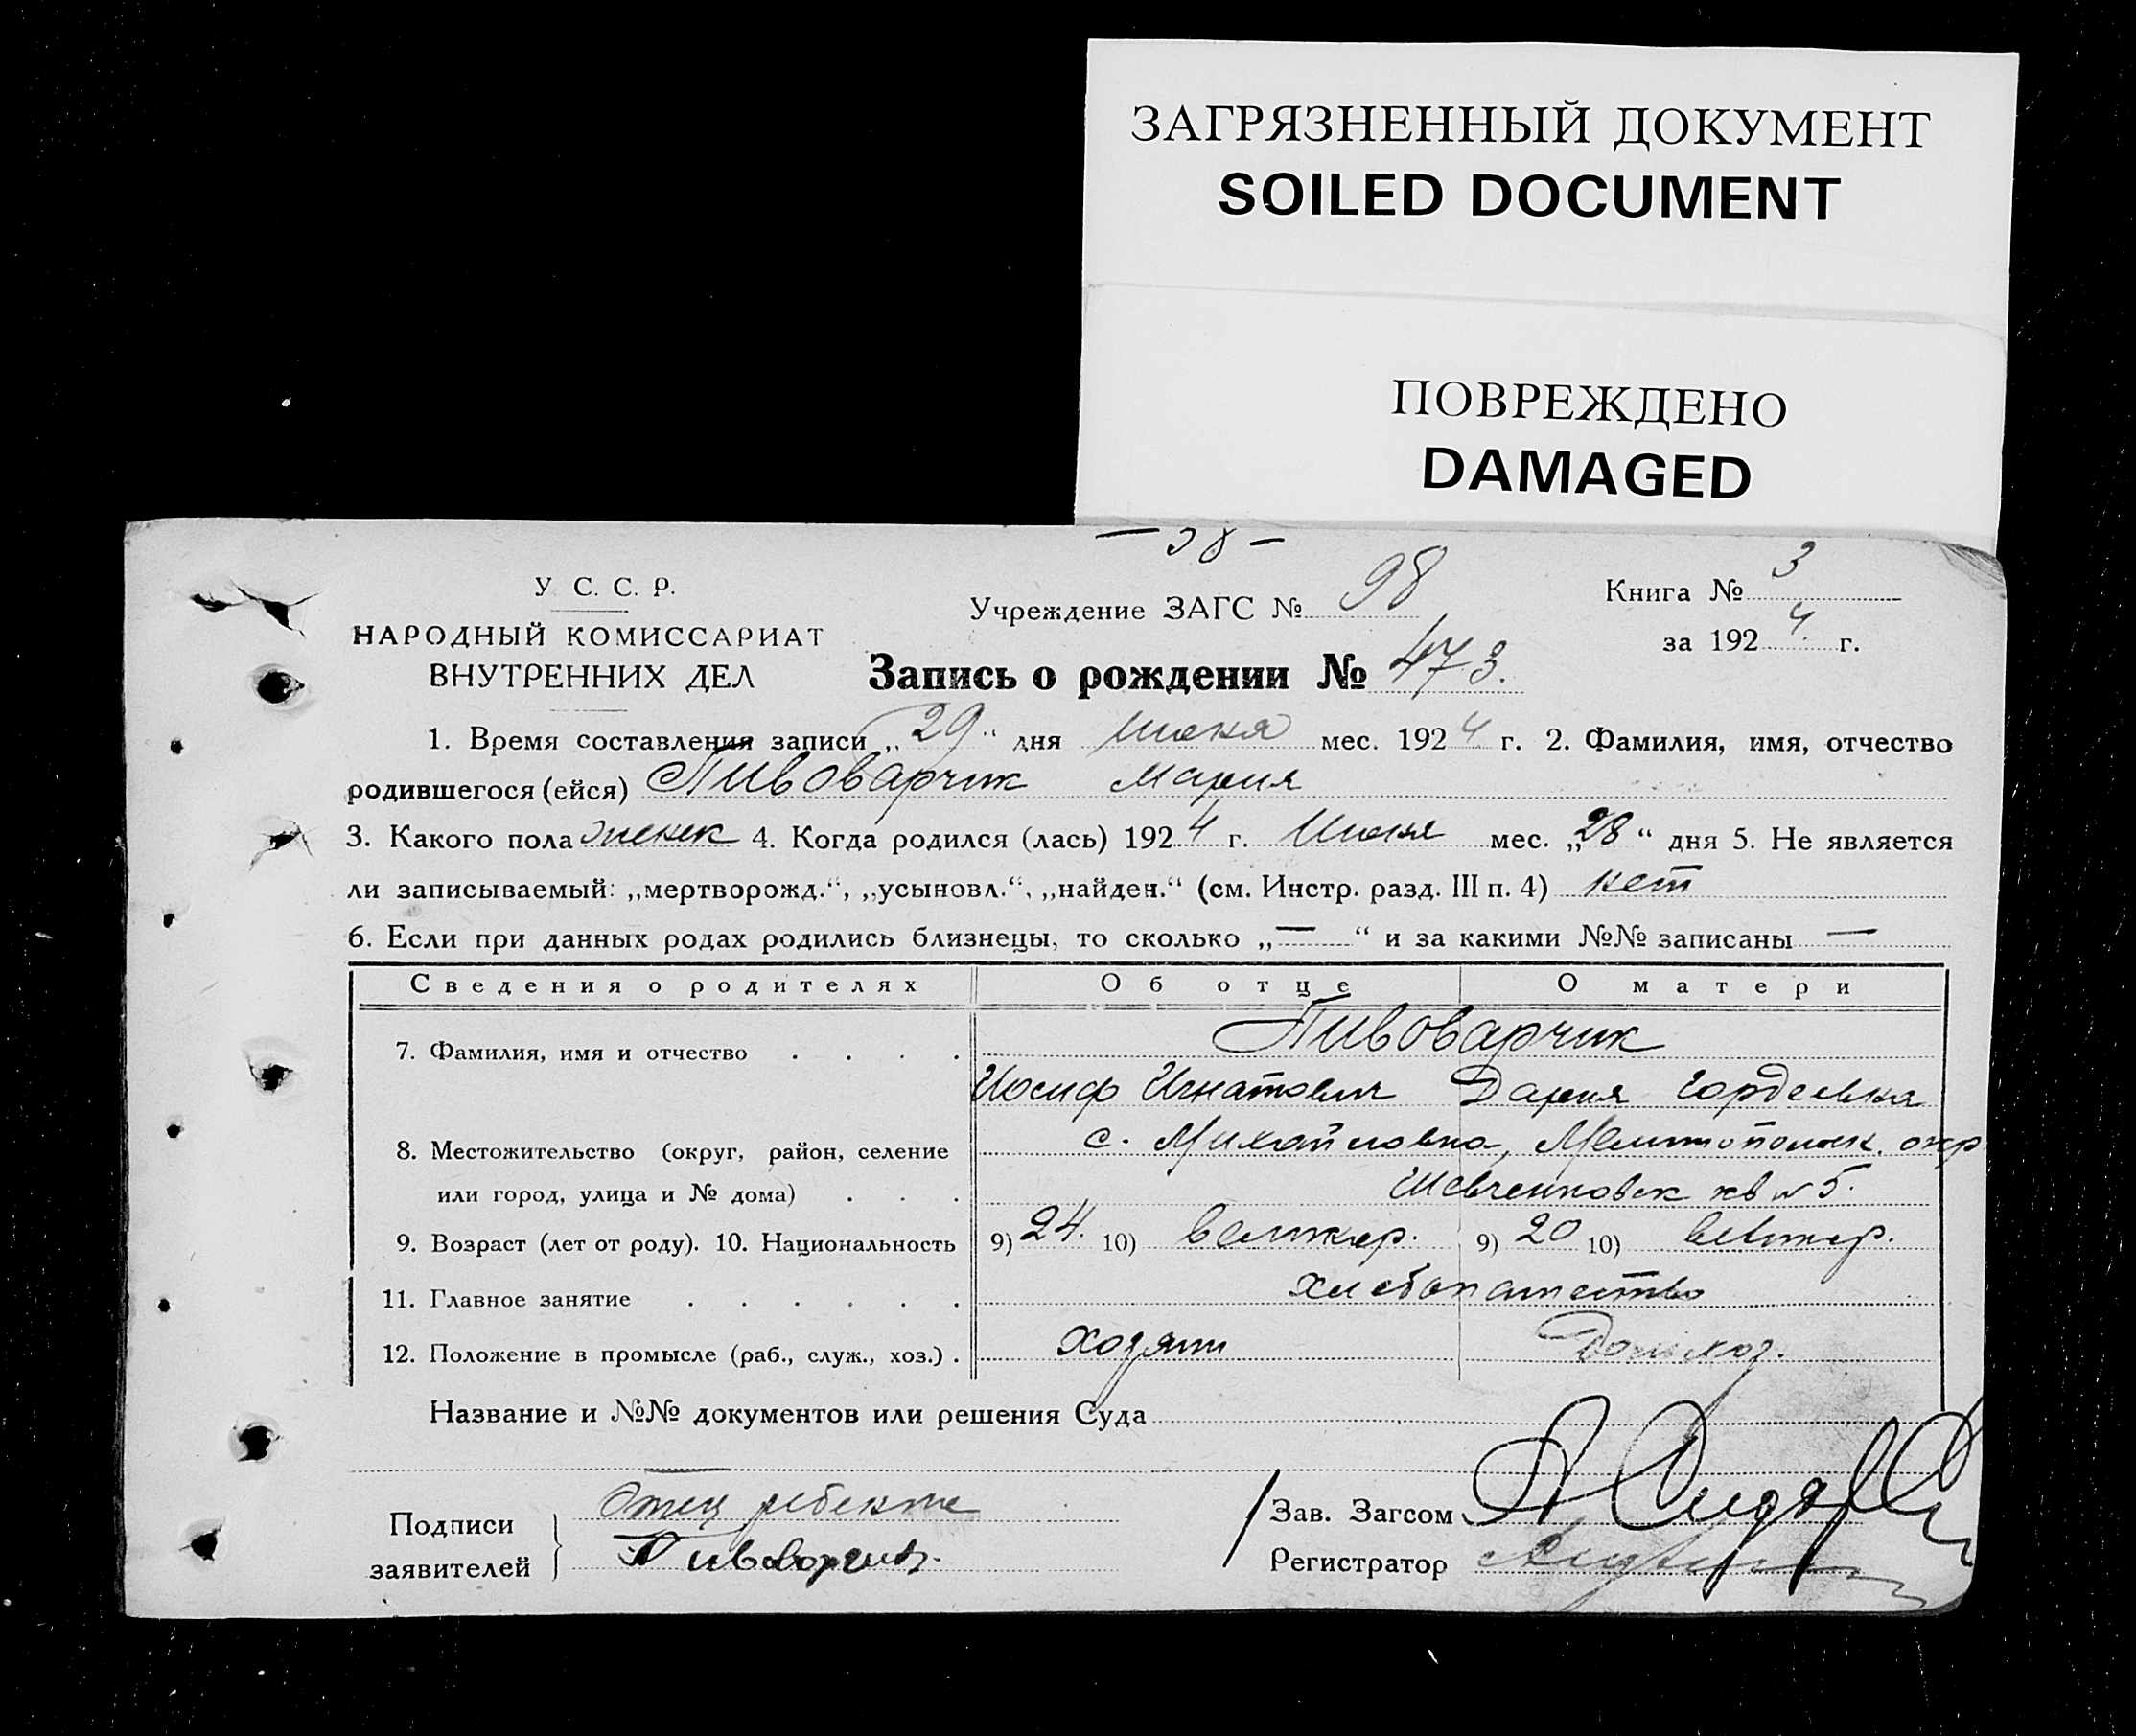 ЗАГРЯЗНЕННЫЙ ДОКУМЕНТ
SOILED DOCUMENT
ПОВРЕЖДЕНО
DAMAGED
У. С. С. Р.
НАРОДНЫЙ КОМИССАРИАТ
ВНУТРЕННИХ ДЕЛ
Учреждение ЗАГС № 98
Книга № 3
за 1924 г.
Запись о рождении № 473.
1. Время составления записи „29“ дня Июня мес. 1924 г. 2. Фамилия, имя, отчество
родившегося (ейся) Пивоварчик Мария
3. Какого пола женск 4. Когда родился (лась) 1924 г. Июня мес. „28“ дня 5. Не является
ли записываемый: „мертворожд.“, „усыновл.“, „найден.“ (см. Инстр. разд. III п. 4) нет
6. Если при данных родах родились близнецы, то сколько „—“ и за какими №№ записаны —
Сведения о родителях Об отце О матери
7. Фамилия, имя и отчество . . . . Пивоварчик
Иосиф Игнатович Дария Гордеевна
8. Местожительство (округ, район, селение с. Михайловка, Мелитопольск. окр
или город, улица и № дома) . . . Шевченковск кв № 5.
9. Возраст (лет от роду). 10. Национальность 9) 24. 10) великор. 9) 20 10) великор.
11. Главное занятие . . . . . . хлебопашество
12. Положение в промысле (раб., служ., хоз.) . хозяин Дом. хоз.
Название и №№ документов или решения Суда
Подписи
заявителей
Отец ребенка
Пивоварчик.
Зав. Загсом
Регистратор